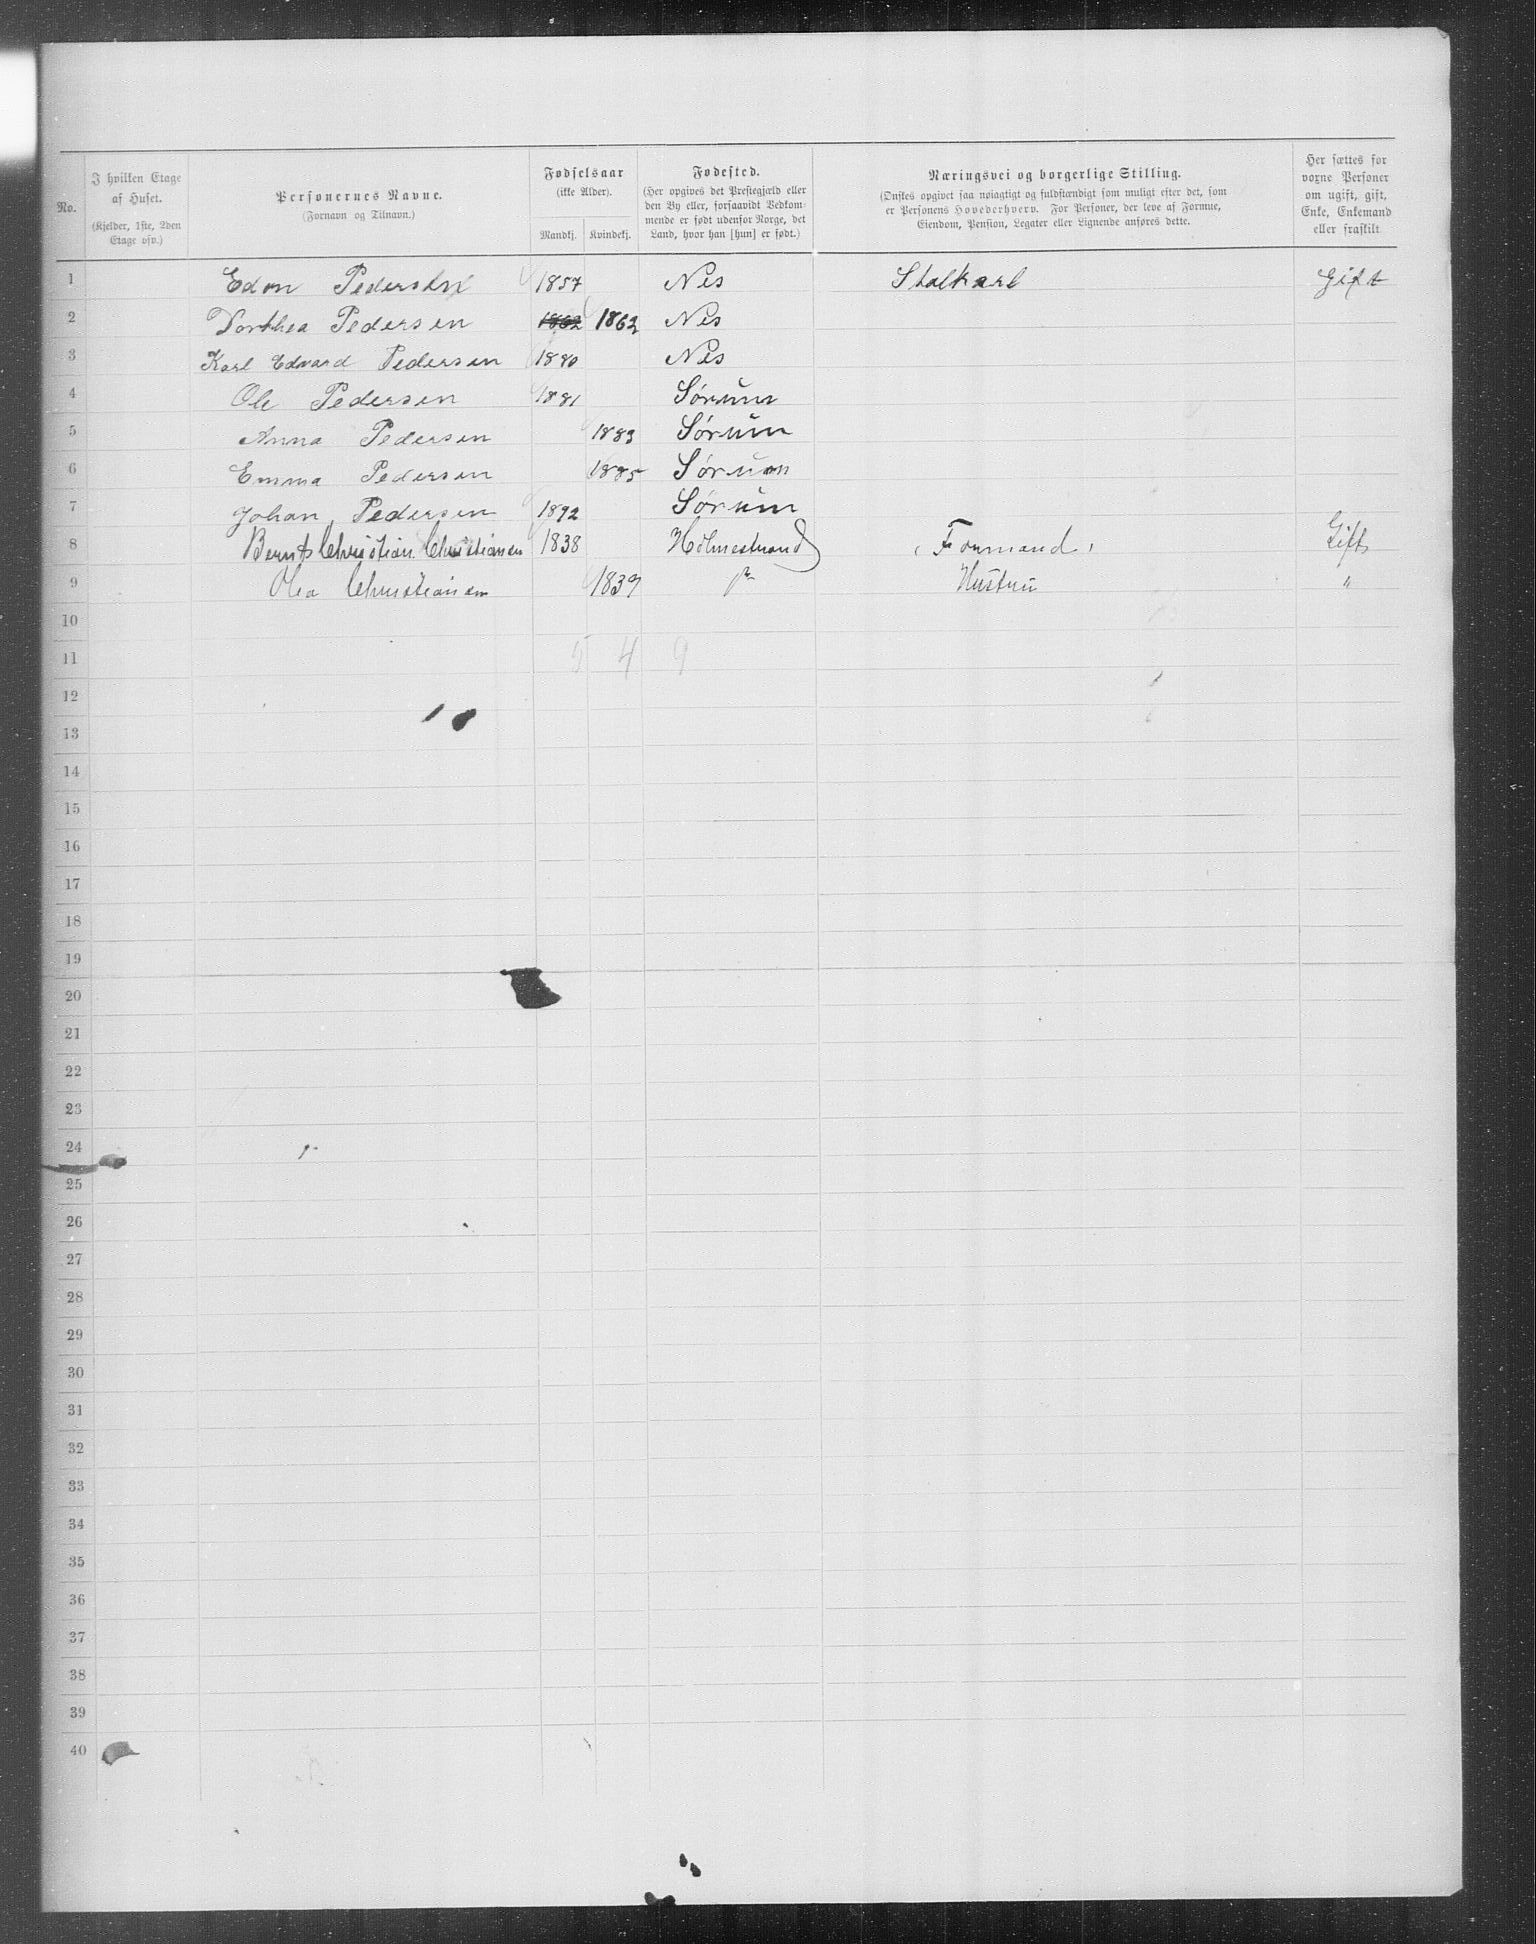 No. I hvilken Etage af Huset. (Kjelder, 1ste, 2den Etage osv.) Personernes Navne. (Fornavn og Tilnavn.) Fødselsaar (ikke Alder). Mandkj. Kvindekj. Fødested. (Her opgives det Prestegjæld eller den By eller, forsaavidt Vedkommende er født udenfor Norge, det Land, hvor han [hun] er født.) Næringsvei og borgerlige Stilling. (Ønskes opgivet saa nøiagtigt og fuldstændigt som muligt efter det, som er Personens Hovederhverv. For Personer, der leve af Formue, Eiendom, Pension, Legater eller Lignende anføres dette. Her sættes for voxne Personer om ugift, gift, Enke, Enkemand eller fraskilt
1 Edvn Pedersen 1857 Nes Stalkarl Gift
2 Dorthea Pedersen 1862 1862 Nes
3 Karl Edvard Pedersen 1880 Nes
4 Ole Pedersen 1881 Sørum
5 Anna Pedersen 1883 Sørum
6 Emma Pedersen 1885 Sørum
7 Johan Pedersen 1892 Sørum
8 Bernt Christian Christiansen 1838 Holmestrand Formand Gift
9 Olea Christiansen 1839 Hustru "
10
11 5 4 9
12
13
14
15
16
17
18
19
20
21
22
23
24
25
26
27
28
29
30
31
32
33
34
35
36
37
38
39
40